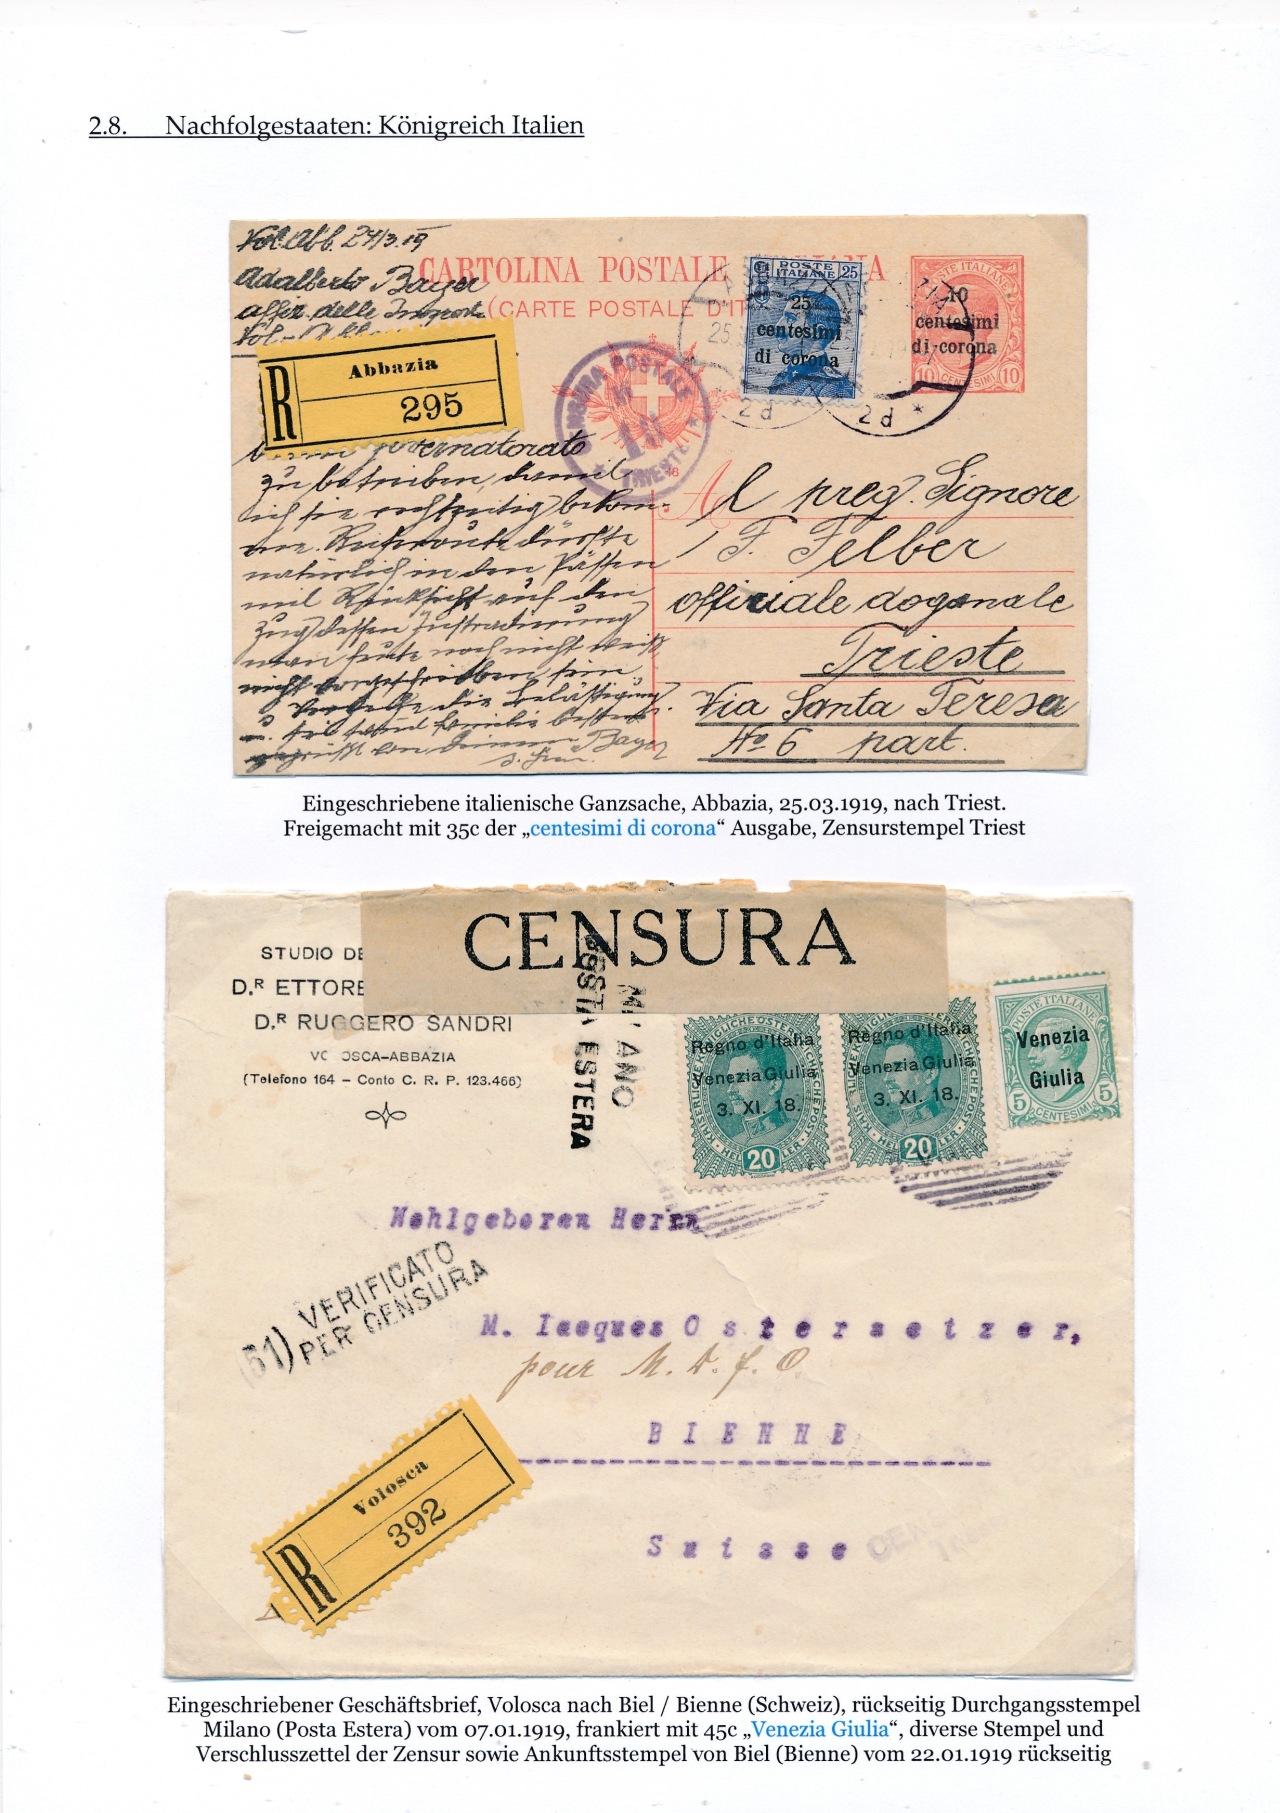 2.8. Nachfolgestaaten: Königreich Italien
Vol. Abb. 24/3.19
Adalberto Bayer
affiz. delle
Abbazia
R
295
governatorato
zu betreiben, damit
ich sie rechtzeitig bekom-
me. dürfte
natürlich in den Pässen
mit Rücksicht auf den
Zug dessen Instradierung
man heute noch nicht weiß
nicht vorgeschrieben sein
die Belästigung
Bayer
CARTOLINA POSTALE
(CARTE POSTALE D'IT
POSTE
ITALIANE
25
25
centesimi
di corona
POSTE ITALIANE
10
centesimi
di corona
10 CENTESIMI 10
CENSURA POSTALE
TRIESTE
2d
2d
Al preg. Signore
F. Felber
officiale doganale
Trieste
Via Santa Teresa
No 6 part.
Eingeschriebene italienische Ganzsache, Abbazia, 25.03.1919, nach Triest.
Freigemacht mit 35c der „centesimi di corona“ Ausgabe, Zensurstempel Triest
CENSURA
STUDIO DE
D.R ETTORE
D.R RUGGERO SANDRI
VOLOSCA-ABBAZIA
(Telefono 164 – Conto C. R. P. 123.466)
MILANO
POSTA ESTERA
Regno d'Italia
Venezia Giulia
3. XI. 18.
20
Regno d'Italia
Venezia Giulia
3. XI. 18.
20
POSTE ITALIANE
Venezia
Giulia
5 CENTESIMI 5
Wohlgeboren Herrn
M. Jacques Ostersetzer,
pour M. D. J. O.
BIENNE
Suisse
(51) VERIFICATO
PER CENSURA
Volosca
R
392
Eingeschriebener Geschäftsbrief, Volosca nach Biel / Bienne (Schweiz), rückseitig Durchgangsstempel
Milano (Posta Estera) vom 07.01.1919, frankiert mit 45c „Venezia Giulia“, diverse Stempel und
Verschlusszettel der Zensur sowie Ankunftsstempel von Biel (Bienne) vom 22.01.1919 rückseitig